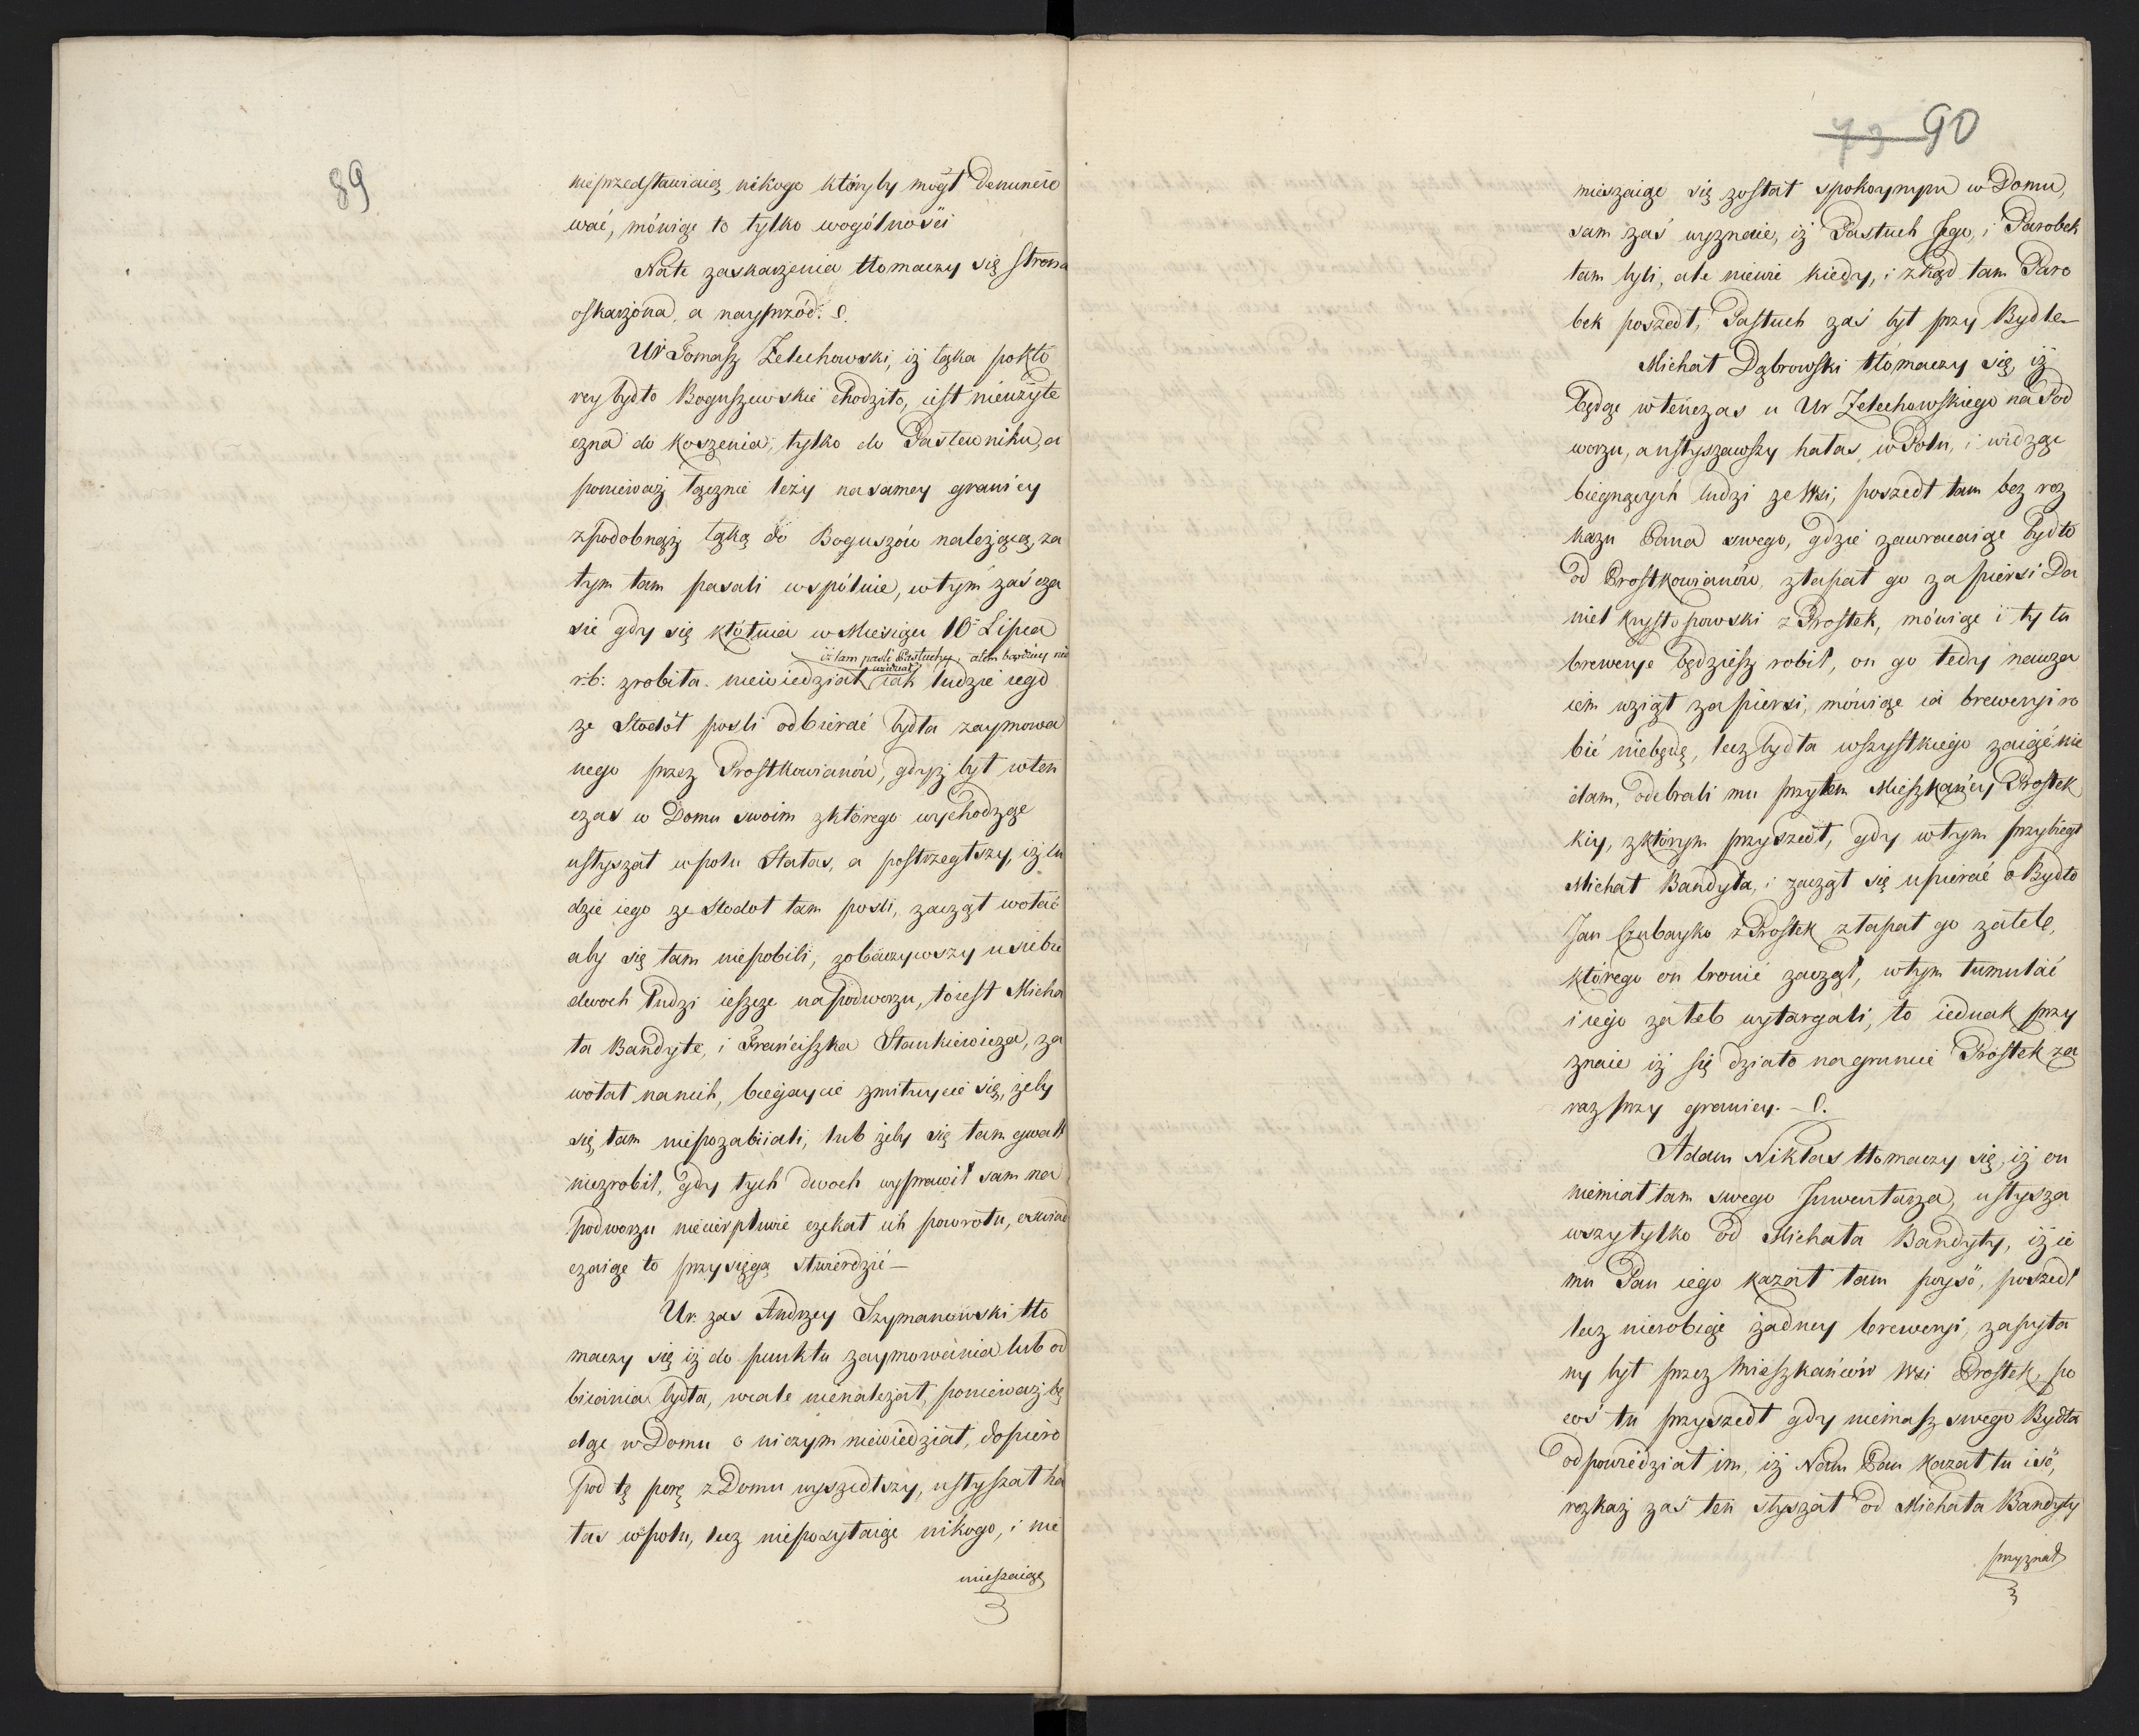 89
nieprzedstawiaią nikogo któryby mógł denuncio
wać, mówiąc to tylko wogólności
Nate zaskarżenia tłomaczy się strona
oskarżona, a nayprzód.
Ur Tomasz Zelechowski, iż łąka pokto
rey bydło Boguszewskie chodziło, iest nieużyte
czna do koszenia, tylko do Pastewniku, a
ponieważ łącznie leży na samey granicy
z podobnąż łąką do Boguszów należącą, za
tym tam pasali wspólnie, w tym zaś cza
sie gdy się kłótnia w Miesiącu 10 Lipca
iż tam pasli Pastuchy, atem bardziey nie
wiedział
r:b: zrobiła. niewiedział iak ludzie iego
ze Stodół posli odbierać bydła zaymowa
nego przez Prostkowianów, gdyż był wten
czas w Domu swoim z którego wychodząc
usłyszał w polu Hałas, a postrzegłszy, iż lu
dzie iego ze Stodoł tam posli, zaczął wołać
aby się tam niepobili, zobaczywszy u siebie
dwoch ludzi ieszcze na podworzu, toiest Micha
ła Bandyte, i Franciszka Stankiewicza, za
wołał nanich, biegaycie zmituycie się, żeby
się tam niepozabiiali, lub żeby się tam gwałt
niezrobił, gdy tych dwoch wyprawił sam na
podworzu niecierpliwie czekał ich powrotu, oswiad
czaiąc to przysięgą stwierdzić —
Ur. zas Andrzey Szymanowski tło
maczy się iż do punktu zaymowania lub od
biiania bydła, wcale nienależał, ponieważ bę
dąc w Domu o niczym niewiedział, dopiero
pod tę porę z Domu wyszedłszy, usłyszał ha
łas w polu, lecz nieposyłaiąc nikogo, i nie
mieszaiąc
73 90
mieszaiąc się został spokoynym w Domu,
sam zaś wyznaie, iż Pastuch Jego, i Parobek
tam byli, ale niewie kiedy, i zkąd tam Paro
bek poszedł, Pastuch zaś był przy Bydle —
Michał Dąbrowski tłómaczy się, iż
będąc wtenczas u Ur Zelechowskiego na Pod
worzu, a usłyszawszy hałas w Polu, i widząc
biegnących ludzi ze Wsi, poszedł tam bez roz
kazu Pana swego, gdzie zawracaiąc bydło
od Prostkowianów, złapał go za piersi Da
niel Krysto powski z Prostek, mówiąc i ty tu
brewerye będziesz robił, on go tedy nawza
iem wziął za piersi, mówiąc ia breweryi ro
bić niebędę, lecz bydła wszystkiego zaiąć nie
dam, odebrali mu przytem Mieszkańcy Prostek
kiy, z którym przyszedł, gdy w tym przybiegł
Michał Bandyta, i zaczął się upierać o Bydło
Jan Czubayko z Prostek złapał go załeb,
którego on bronić zaczął, wtym tumulcie
i iego załeb wytargali, to iednak przy
znaie iż się działo na gruncie Prostek za
raz przy granicy. —
Adam Niklas tłomaczy się, iż on
niemiał tam swego Inwentarza, usłysza
wszy tylko od Michała Bandyty, iż ie
mu Pan iego kazał tam poysć, poszedł
lecz nierobiąc żadney breweryi, zapyta
ny był przez Mieszkańców Wsi Prostek, po
coś tu przyszedł gdy niemasz swego Bydła
odpowiedział im, iż Nam Pan kazał tu iść,
rozkaz zaś ten słyszał od Michała Bandyty
przyznał